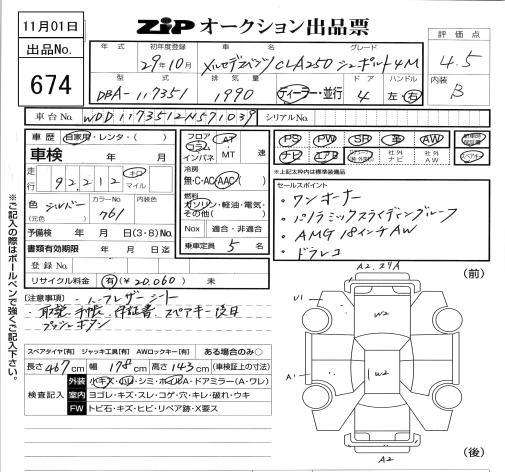 11月01日
ZiP オークション出品票
出品No.
674
年式 初年度登録 車名 グレード
29年10月 メルセデスベンツ CLA250 シュポルト4M
評価点
4.5
内装
B
型式 排気量 ドア ハンドル
DBA-117351 1990 ディーラー・並行 4 左・右
車台No. WDD1173512N571039 シリアルNo.
車歴 自家用・レンタ・( )
車検 年 月
走行 92,212 キロ マイル
色 シルバー カラーNo. 761 内装色
(元色)
予備検 年 月 日(3・8)No.
書類有効期限 年 月 日迄
登録No.
リサイクル料金 有(¥20,060) 未
フロア コラム インパネ AT MT 速
冷房
無・C・AC・AAC( )
燃料
ガソリン・軽油・電気・その他( )
Nox 適合・非適合
乗車定員 5 名
PS PW SR 革 AW
ナビ エアB 社外ナビ 社外AW
新車時保証書
スペアキー
※上記太枠内は標準装備品
セールスポイント
・ワンオーナー
・パノラミックスライディングルーフ
・AMG 18インチAW
・ドラレコ
注意事項
・取説 手帳 保証書 スペアキー後日
プッシュボタン
スペアタイヤ[有] ジャッキ工具[有] AWロックキー[有] ある場合のみ○
長さ467cm 幅178cm 高さ143cm (車検証上の寸法)
検査記入
外装 小キズ・凹・シミ・ホイルA・ドアミラー(A・ワレ)
室内 ヨゴレ・キズ・スレ・コゲ・穴・キレ・破れ・ウキ
FW トビ石・キズ・ヒビ・リペア跡・X要ス
(前)
A2.
U1
W2
A1
W2
A2
(後)
※ご記入の際はボールペンで強くご記入下さい。